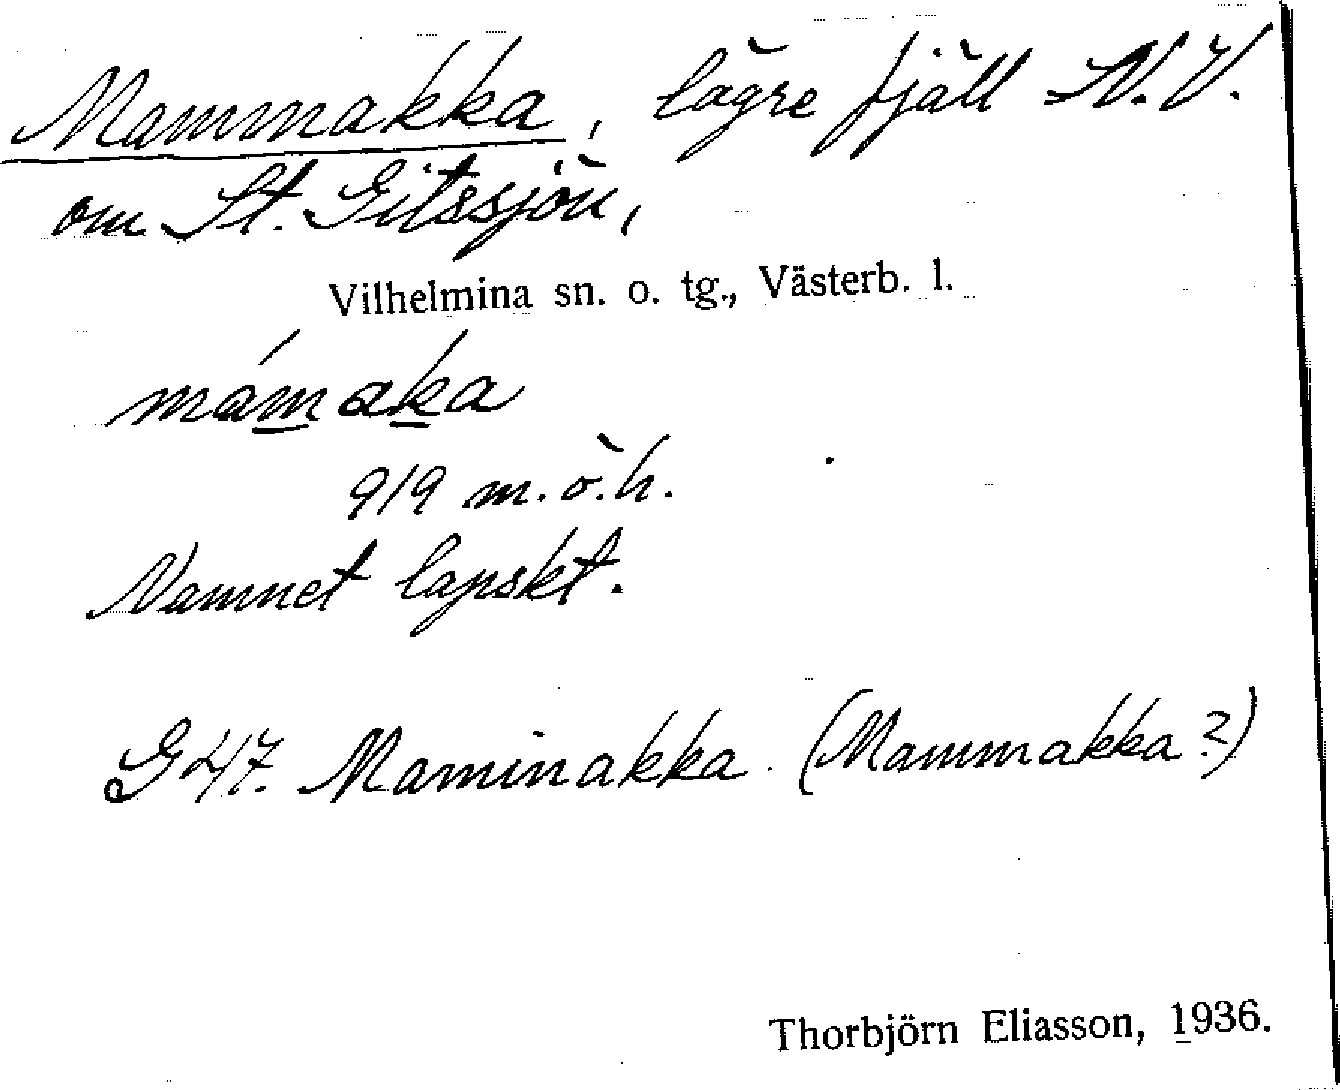 Mammakka, lägre fjäll N.V.
om St. Gitssjön,
Vilhelmina sn. o. tg., Västerb. l.
mámaka
919 m.ö.h.
Namnet lapskt.
G 47. Maminakka. (Mammakka?)
Thorbjörn Eliasson, 1936.